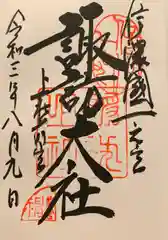 信濃國一之宮
諏訪大社
上社本宮
令和三年八月九日